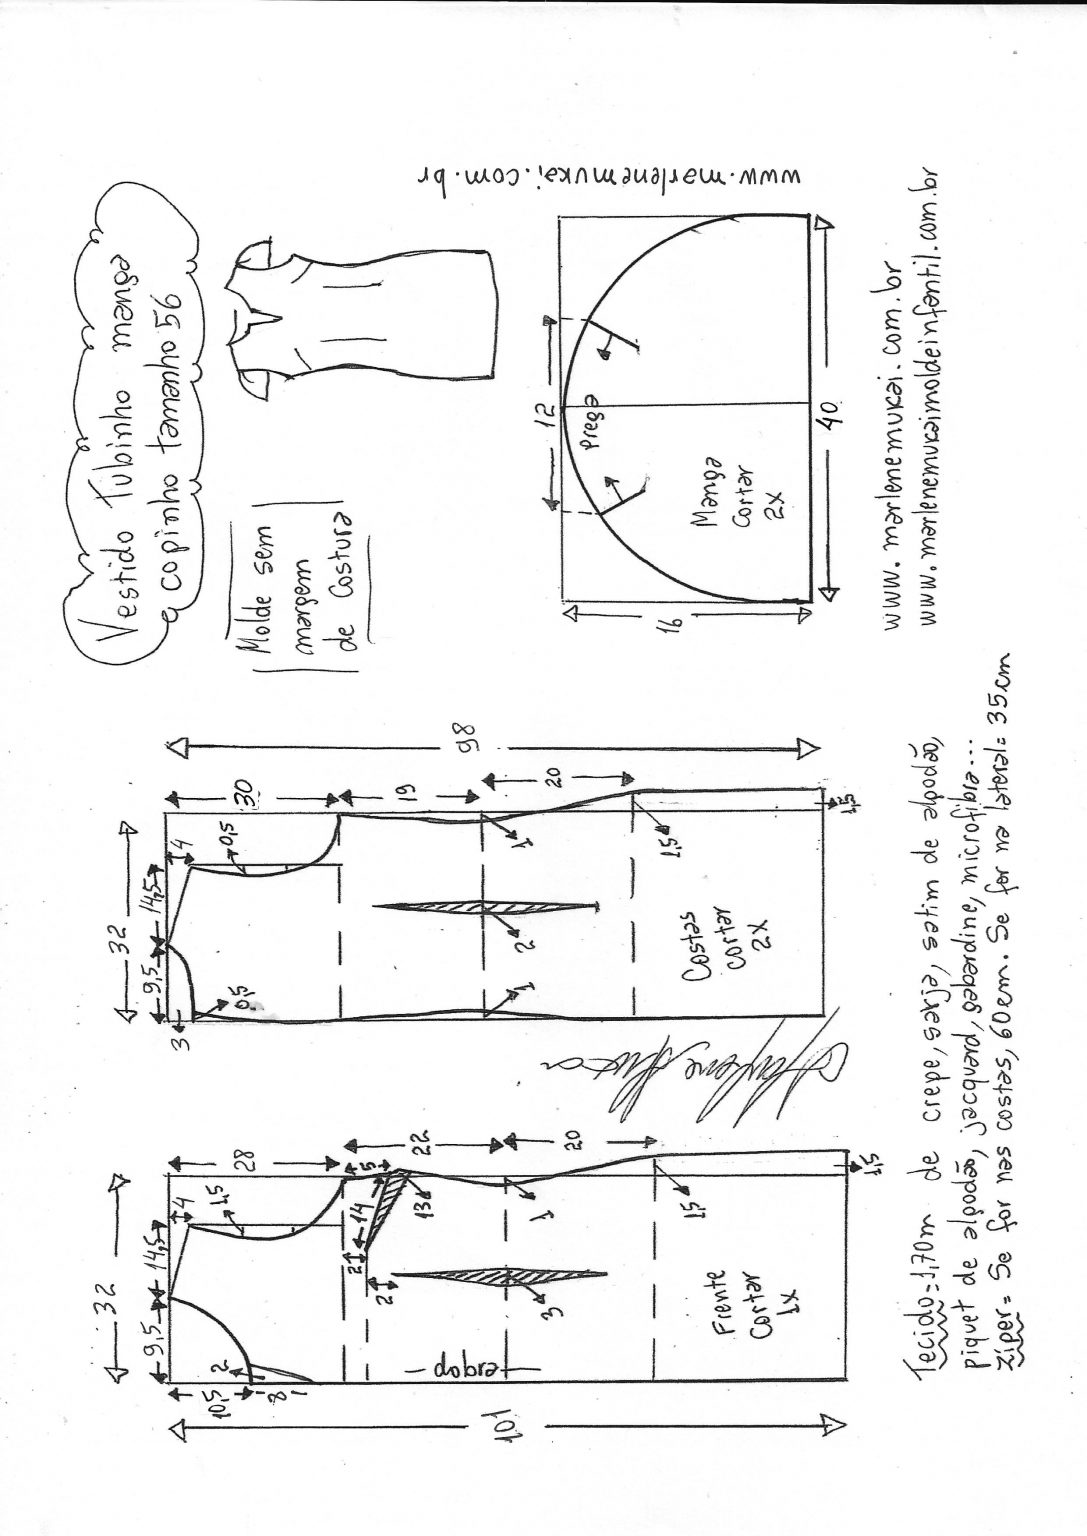 Vestido Tubinho manga
copinho tamanho 56
Molde sem
margem
de Costura
www.marlenemukai.com.br
12
Prega
Manga
Cortar
2X
16
40
www.marlenemukai.com.br
www.marlenemukaimoldeinfantil.com.br
32
9,5
14,5
4
10,5
2
8
1,5
28
5
14
13
2
2
22
20
3
1
1,5
1,5
dobra
Frente
Cortar
1x
101
32
9,5
14,5
4
3
0,5
0,5
30
19
20
2
1
1
1,5
1,5
Costas
Cortar
2X
98
Tecido=1,70m de crepe, sarja, setim de algodão,
piquet de algodão, Jacquard, gabardine, microfibra...
Zíper= Se for nas costas, 60cm. Se for na lateral= 35cm